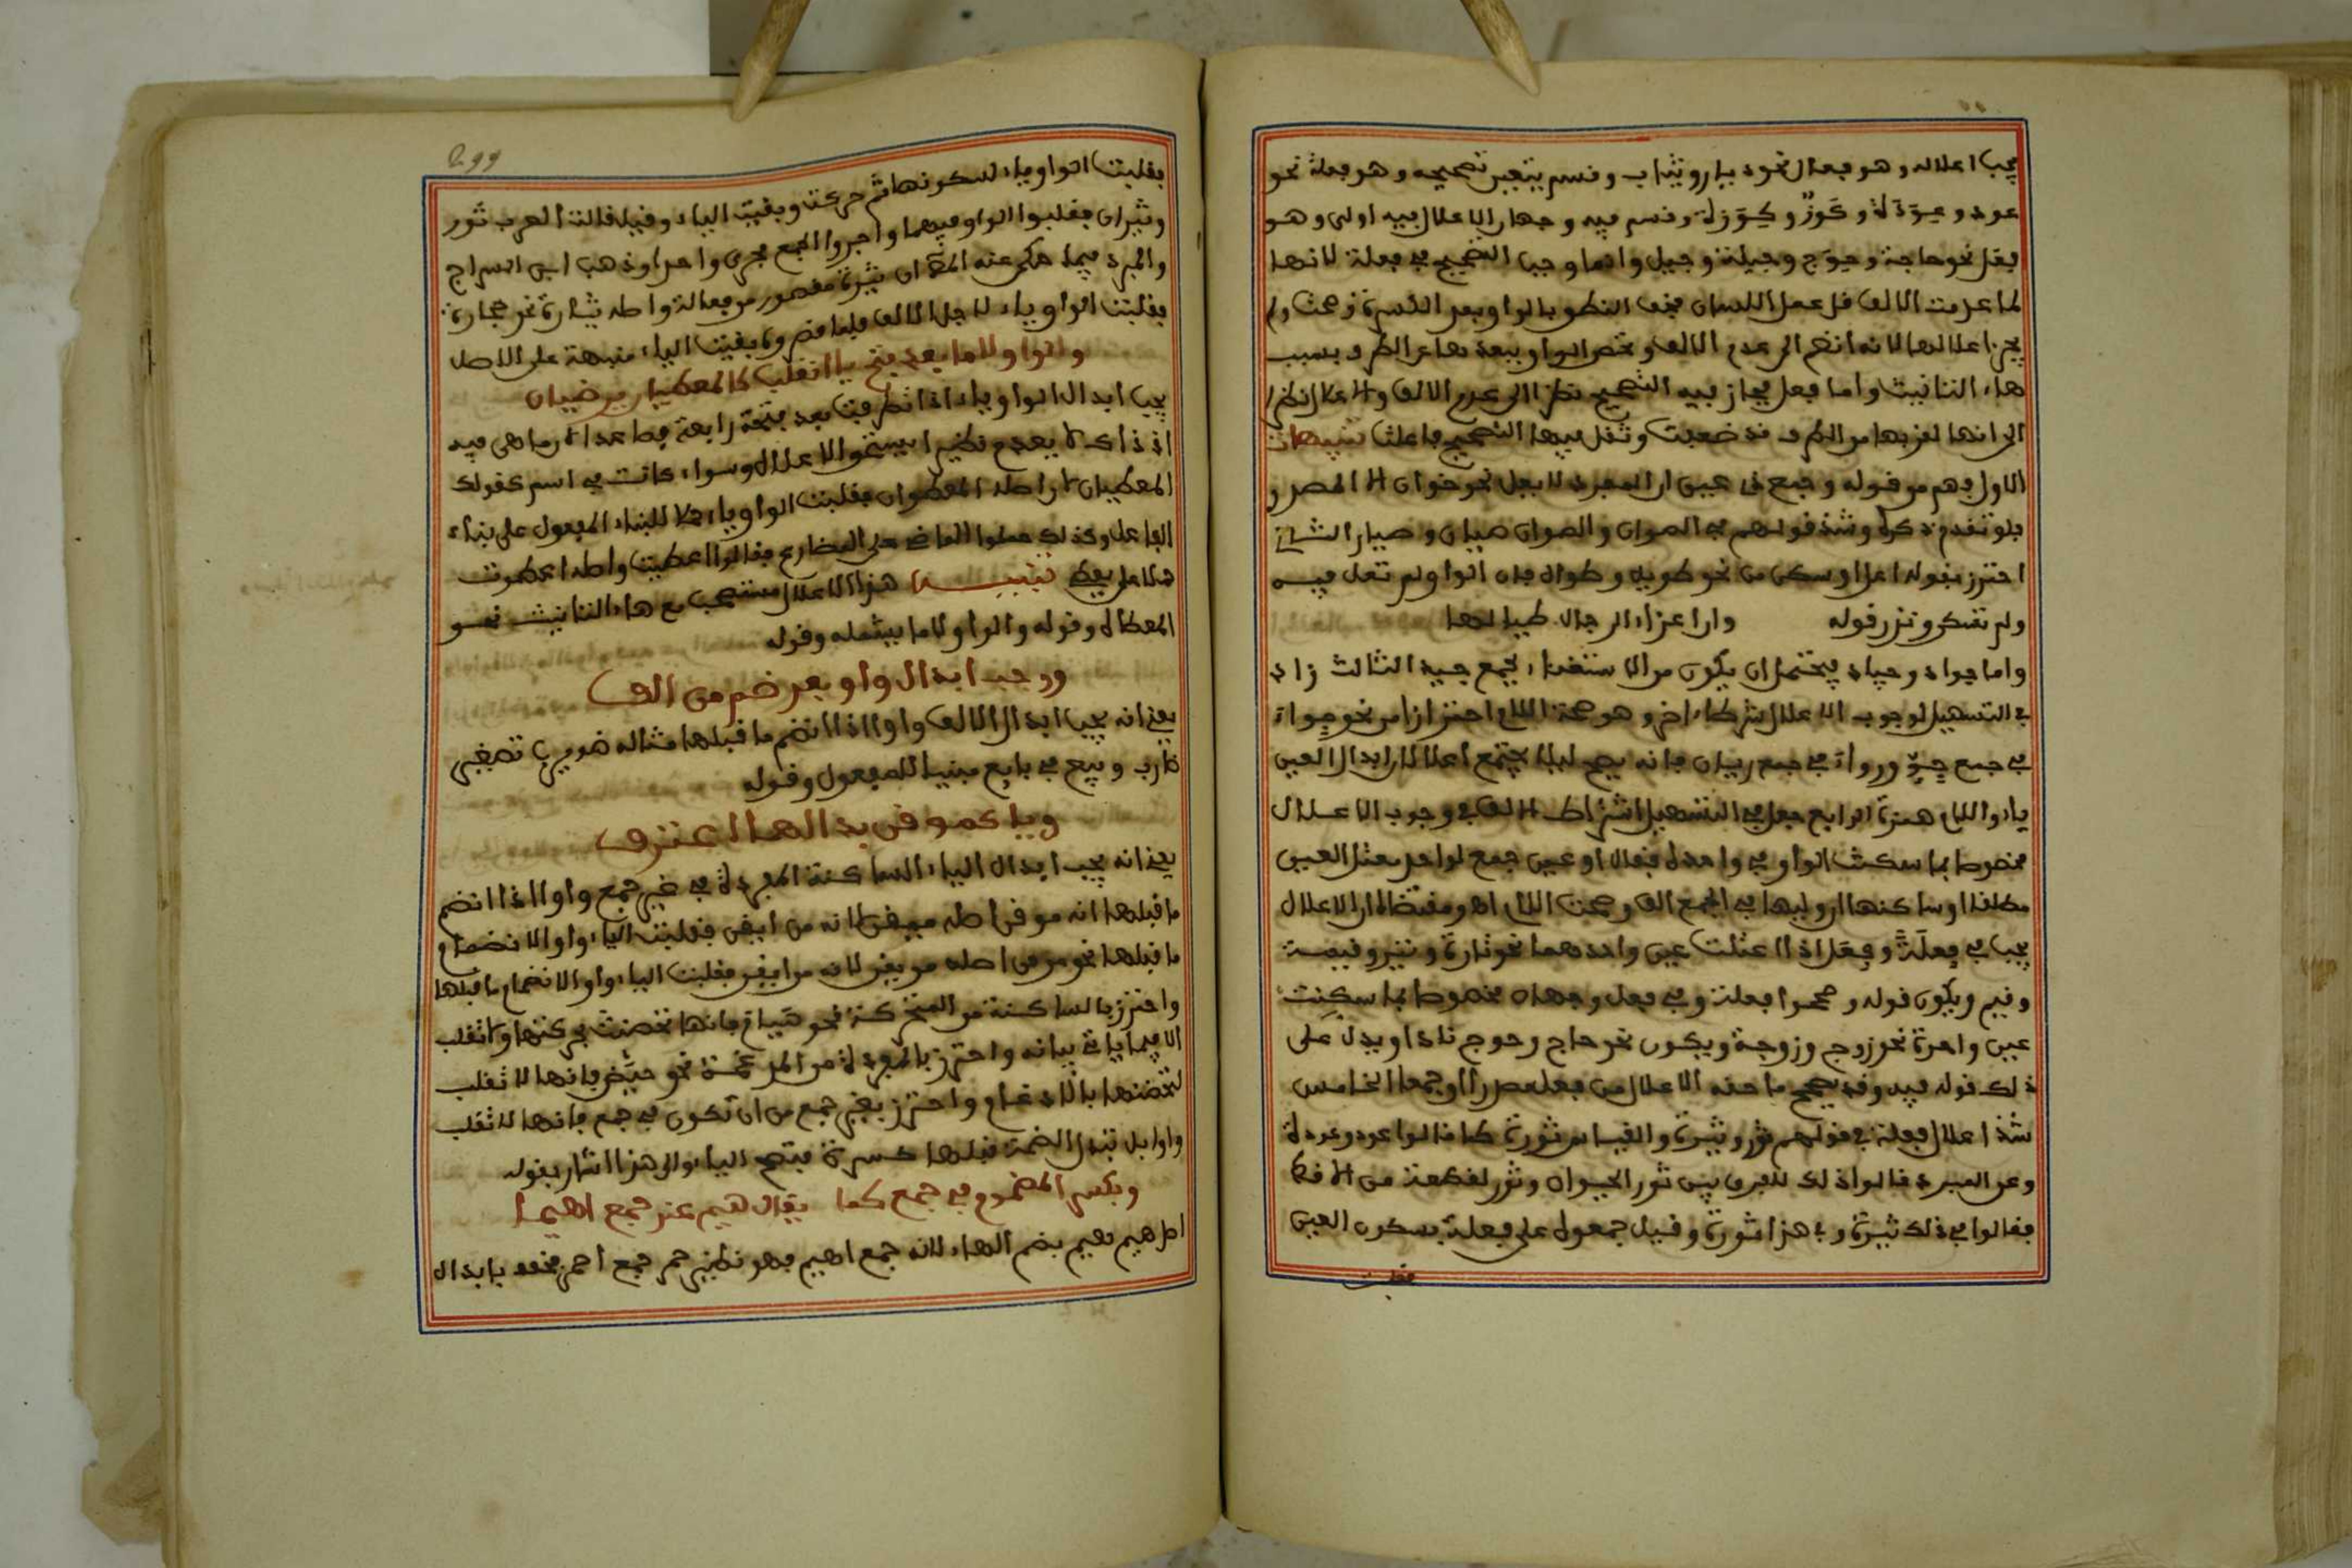 يجب اعلاله وهو فعال نحو ديار وثياب وقسم يتعين تصحيحه وهو فعلة نحو
عود وعودة وكوز وكوزة وقسم فيه وجهان الاعلال فيه اولى وهو
فعل نحو حاجة وحوج وحيلة وحيل وانما وجب التصحيح في فعلة لانها
لما عدمت الالف قل عمل اللسان فخف النطق بالواو بعد الكسرة فصحت ولم
يجز اعلالها لانه انضم الى عدم الالف تحصن الواو ببعدها عن الطرف بسبب
هاء التانيث واما فعل فجاز فيه التصحيح نظرا الى عدم الالف والاعلال نظرا
الى انها لقربها من الطرف قد ضعفت وثقل فيها التصحيح فاعلت تنبيهات
الاول فهم من قوله وجمع ذي عين ان المفرد لا يعل نحو خوان الا المصدر و
قد تقدم ذكره وشذ قولهم في الصوان والصوار صيان وصيار الثاني
احترز بقوله اعل او سكن من نحو طويل وطوال فان الواو لم تعل فيه
ولم تسكن وندر قوله وان اعزاء الرجال طيالها
واما جواد وجياد فيحتمل ان يكون من الاستغناء بجمع جيد الثالث زاد
في التسهيل لوجوب الاعلال شرطا اخر وهو صحة اللام احترازا من نحو جواء
في جمع جو ورواء في جمع ريان فانه يصح ليلا يجتمع اعلالان ابدال العين
ياء واللام همزة الرابع جعل في التسهيل اشتراط الالف في وجوب الاعلال
مخصوصا بما سكنت الواو في واحده فقال او عين جمع لواحد معتل العين
مطلقا او ساكنها ان وليها في الجمع الف وصحت اللام اه ومقتضاه ان الاعلال
يجب في فعلة وفعل اذا اعتلت عين واحدهما نحو تارة وتير وقيمة
وقيم ويكون قوله وصححوا فعلة وفي فعل وجهان مخصوصا بما سكنت
عين واحده نحو زوج وزوجة ويكون نحو حاج وحوج شاذا ويدل على
ذلك قوله فيه وقد يصحح ما حقه الاعلال من فعل مصدرا او جمعا الخامس
شذ اعلال فعلة في قولهم ثور وثيرة والقياس ثورة كما قالوا عود وعودة
وعن المبرد قالوا ذلك للفرق بين ثور الحيوان وثور لقطعة من الاقط
فقالوا في ذلك ثيرة وفي هذا ثورة وقيل جمعوه على فعلة بسكون العين
فقلبت
299
فقلبت الواو ياء لسكونها ثم حركت وبقيت الياء وقيل قالت العرب ثور
وثيران فقلبوا الواو فيهما واجروا الجمع مجرى واحدا وذهب ابن السراج
والمبرد فيما حكى عنه الى ان ثيرة مقصور من فعالة واصله ثيارة نحو حجارة
فقلبت الواو ياء لاجل الالف فلما قصروه بقيت الياء منبهة على الاصل
والواو لاما بعد فتح يا انقلب كالمعطيان يرضيان
يجب ابدال الواو ياء اذا تطرفت بعد فتحة رابعة فصاعدا لان ما هي فيه
اذ ذاك لا يعدم نظيرا يستحق الاعلال وسواء كانت في اسم كقولك
المعطيان اصله المعطوان فقلبت الواو ياء حملا للبناء المفعول على بناء
الفاعل وكذلك حملوا الماضي على المضارع فقالوا اعطيت واصله اعطوت
حملا على يعطي تنبيه هذا الاعلال مستصحب مع هاء التانيث نحو
المعطاة وقوله والواو لاما يشمله وقوله
ووجب ابدال واو بعد ضم من الف
يعني انه يجب ابدال الالف واوا اذا انضم ما قبلها مثاله ضويرب تصغير
ضارب وبويع في بايع مبنيا للمفعول وقوله
ويا كموقن بذا لها اعترف
يعني انه يجب ابدال الياء الساكنة المفردة في غير جمع واوا اذا انضم
ما قبلها انه موقن اصله ميقن لانه من ايقن فقلبت الياء واوا لانضمام
ما قبلها نحو موقن اصله ميقن لانه من ايقن فقلبت الياء واوا لانضمام ما قبلها
واحترز بالساكنة من المتحركة نحو هيام فانها تحصنت بحركتها ولا تقلب
الا فيما ياتي بيانه واحترز بالمفردة من المدغمة نحو حيض فانها لا تقلب
لتحصنها بالادغام واحترز بغير جمع من ان تكون في جمع فانها لا تقلب
واوا بل تبدل الضمة قبلها كسرة فتصح الياء والى هذا اشار بقوله
ويكسر المضموم في جمع كما يقال هيم عند جمع اهيما
اصل هيم هيم بضم الهاء لانه جمع اهيم فهو نظير حمر جمع احمر فخفف بابدال